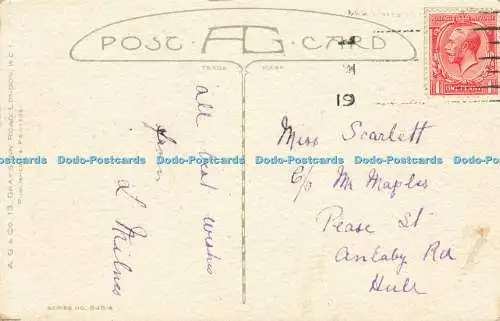 POST AG CARD
TRADE MARK
19
all best wishes
from
L Milnes
Miss Scarlett
C/o Mr Maples
Pease St
Anlaby Rd
Hull
A. G. & Co. 13, Gray's Inn Road, London, W.C.1.
Publishers & Printers
SERIES NO.
Dodo-Postcards Dodo-Postcards Dodo-Postcards Dodo-Postcards Dodo-Postcards